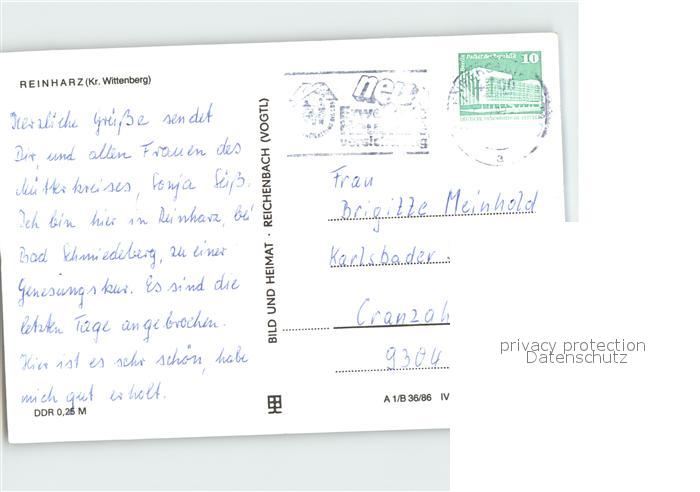 REINHARZ (Kr. Wittenberg)
Herzliche Grüße sendet
Dir, und allen Frauen des
Mütterkreises, Sonja Süß.
Ich bin hier in Reinharz, bei
Bad Schmiedeberg, zu einer
Genesungskur. Es sind die
letzten Tage angebrochen.
Hier ist es sehr schön, habe
mich gut erholt.
DDR 0,25 M
BILD UND HEIMAT · REICHENBACH (VOGTL)
A 1/B 36/86 IV
neu
10
Palast der Republik
Frau
Brigitte Meinhold
Karlsbader
Cranzah
9304
privacy protection
Datenschutz